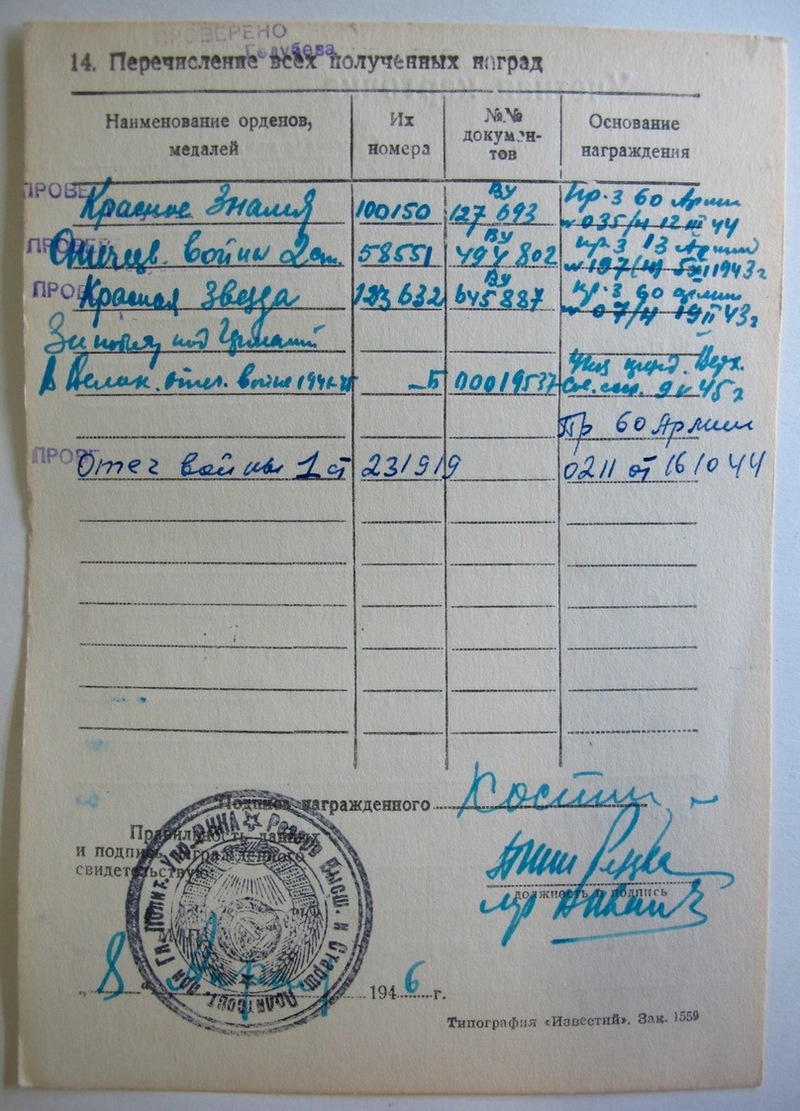 ПРОВЕРЕНО
Голубева
14. Перечисление всех полученных наград
Наименование орденов, медалей
Их номера
№№ документов
Основание награждения
ПРОВЕ Красное Знамя 100150 ВУ 127 693 Пр. 3 60 Армии
№ 035/н 12 III 44
ПРОВЕ Отечеств. войны 2 ст. 58551 ВУ 494 802 пр. 3 13 Армии
ПРОВЕ Красная Звезда ВУ 645 887 пр. 3 60 армии
№ 07/н 19 II 43 г
За победу над Германией
в Велик. отеч. войне 1941-45 Б 00019537 9 V 45 г
Пр 60 Армии
ПРОВЕ Отеч войны 1 ст 231919 0211 от 16 10 44
Подпись награжденного Костин
Правильность данных
и подпись награжденного
свидетельствую:
должность и подпись
Резерв Высш. и Старш. Политсост. при Гл. Полит. Упр. РККА
„8 1946 г.
Типография «Известий». Зак. 1559